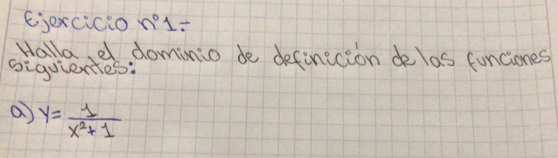 Ejercicio nº1.-
Halla el dominio de definición de las funciones
siguientes:
a) y = 1/(x²+1)